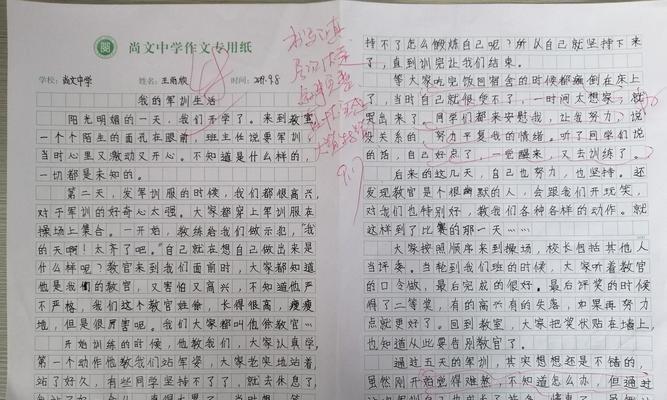 尚文中学作文专用纸
学校：尚文中学 姓名：王雨欣 时间：2017.9.8
我的军训生活
阳光明媚的一天，我们开学了。来到教室
一个个陌生的面孔在眼前，班主任说要军训，
当时心里又激动又开心。不知道是什么样的，
一切都是未知的。
第二天，发军训服的时候，我们都很高兴，
对于军训的好奇心太强。大家都穿上军训服在
操场上集合。一开始，教练给我们做示犯，“我
的天啊！太齐了吧。”自己就在想自己做出来是
什么样呢？教官来到我们面前时，大家都知道
他是我们的教官，又害怕又高兴，不知道他严
不严格，我们这个教官姓徐，长得很高，瘦瘦
地，但是很厉害吧。我们大家都叫他徐教官…
开始训练的时候，他教我们，大家认真学，
第一个动作他教我们站军姿，大家老实地站着
站了好久，有些同学坚持不了了，就去休息了，
持不了怎么锻炼自己呢？所以自己就坚持下来
了，直到训完让我们结束。
等大家吃完饭回宿舍的时候都瘫倒在床上
了，当时自己就很受不了，一时间太想家，就
哭出来了。同学们都来安慰我，让我努力，说
没关系的，努力平复我的情绪。听了同学们说
的话，自己好点了，一觉醒来，又去训练了。
后来的这几天，自己也努力，也坚持。还
发现教官是个很幽默的人，会跟我们开玩笑，
对我们也特别好，教我们各种各样的动作。就
这样到了比赛的那一天……
大家按照顺序来到操场，校长包括其他人
当评委。当轮到我们班的时候，大家听着教官
的口令做，最后完成的很好。最后评奖的时候
得了二等奖，有的高兴有的失落，如果再努力
点就更好了。回到教室，大家把奖状贴在墙上，
也知道从此要告别教官了。
通过五天的军训，其实想想还是不错的，
虽然刚开始觉得难熬，不知道怎么办，但通过